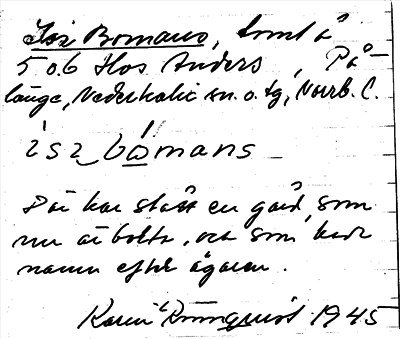 Isz Bomans, tomt å
5 o. 6 Hos Anders, På-
länge, Nederkalix sn. o. tg, Norrb. C.
ísz bómans
Där har stått en gård, som
nu är borta, och som hade
namn efter ägaren.
Karin Krönquist 1945